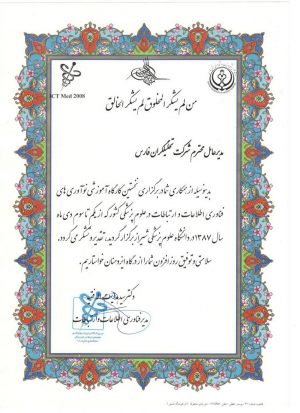 ICT Med 2008
من لم یشکر المخلوق لم یشکر الخالق
مدیرعامل محترم شرکت تحلیلگران فارس
بدینوسیله از همکاری شما در برگزاری نخستین کارگاه آموزشی نوآوری های
فناوری اطلاعات و ارتباطات در علوم پزشکی کشور که از یکم تا سوم دی ماه
سال ۱۳۸۷ در دانشگاه علوم پزشکی شیراز برگزار گردید، تقدیر و تشکر می گردد.
سلامتی و توفیق روز افزون شما را از درگاه ایزد منان خواستاریم.
دکتر سید
مدیر فناوری اطلاعات و ارتباطات